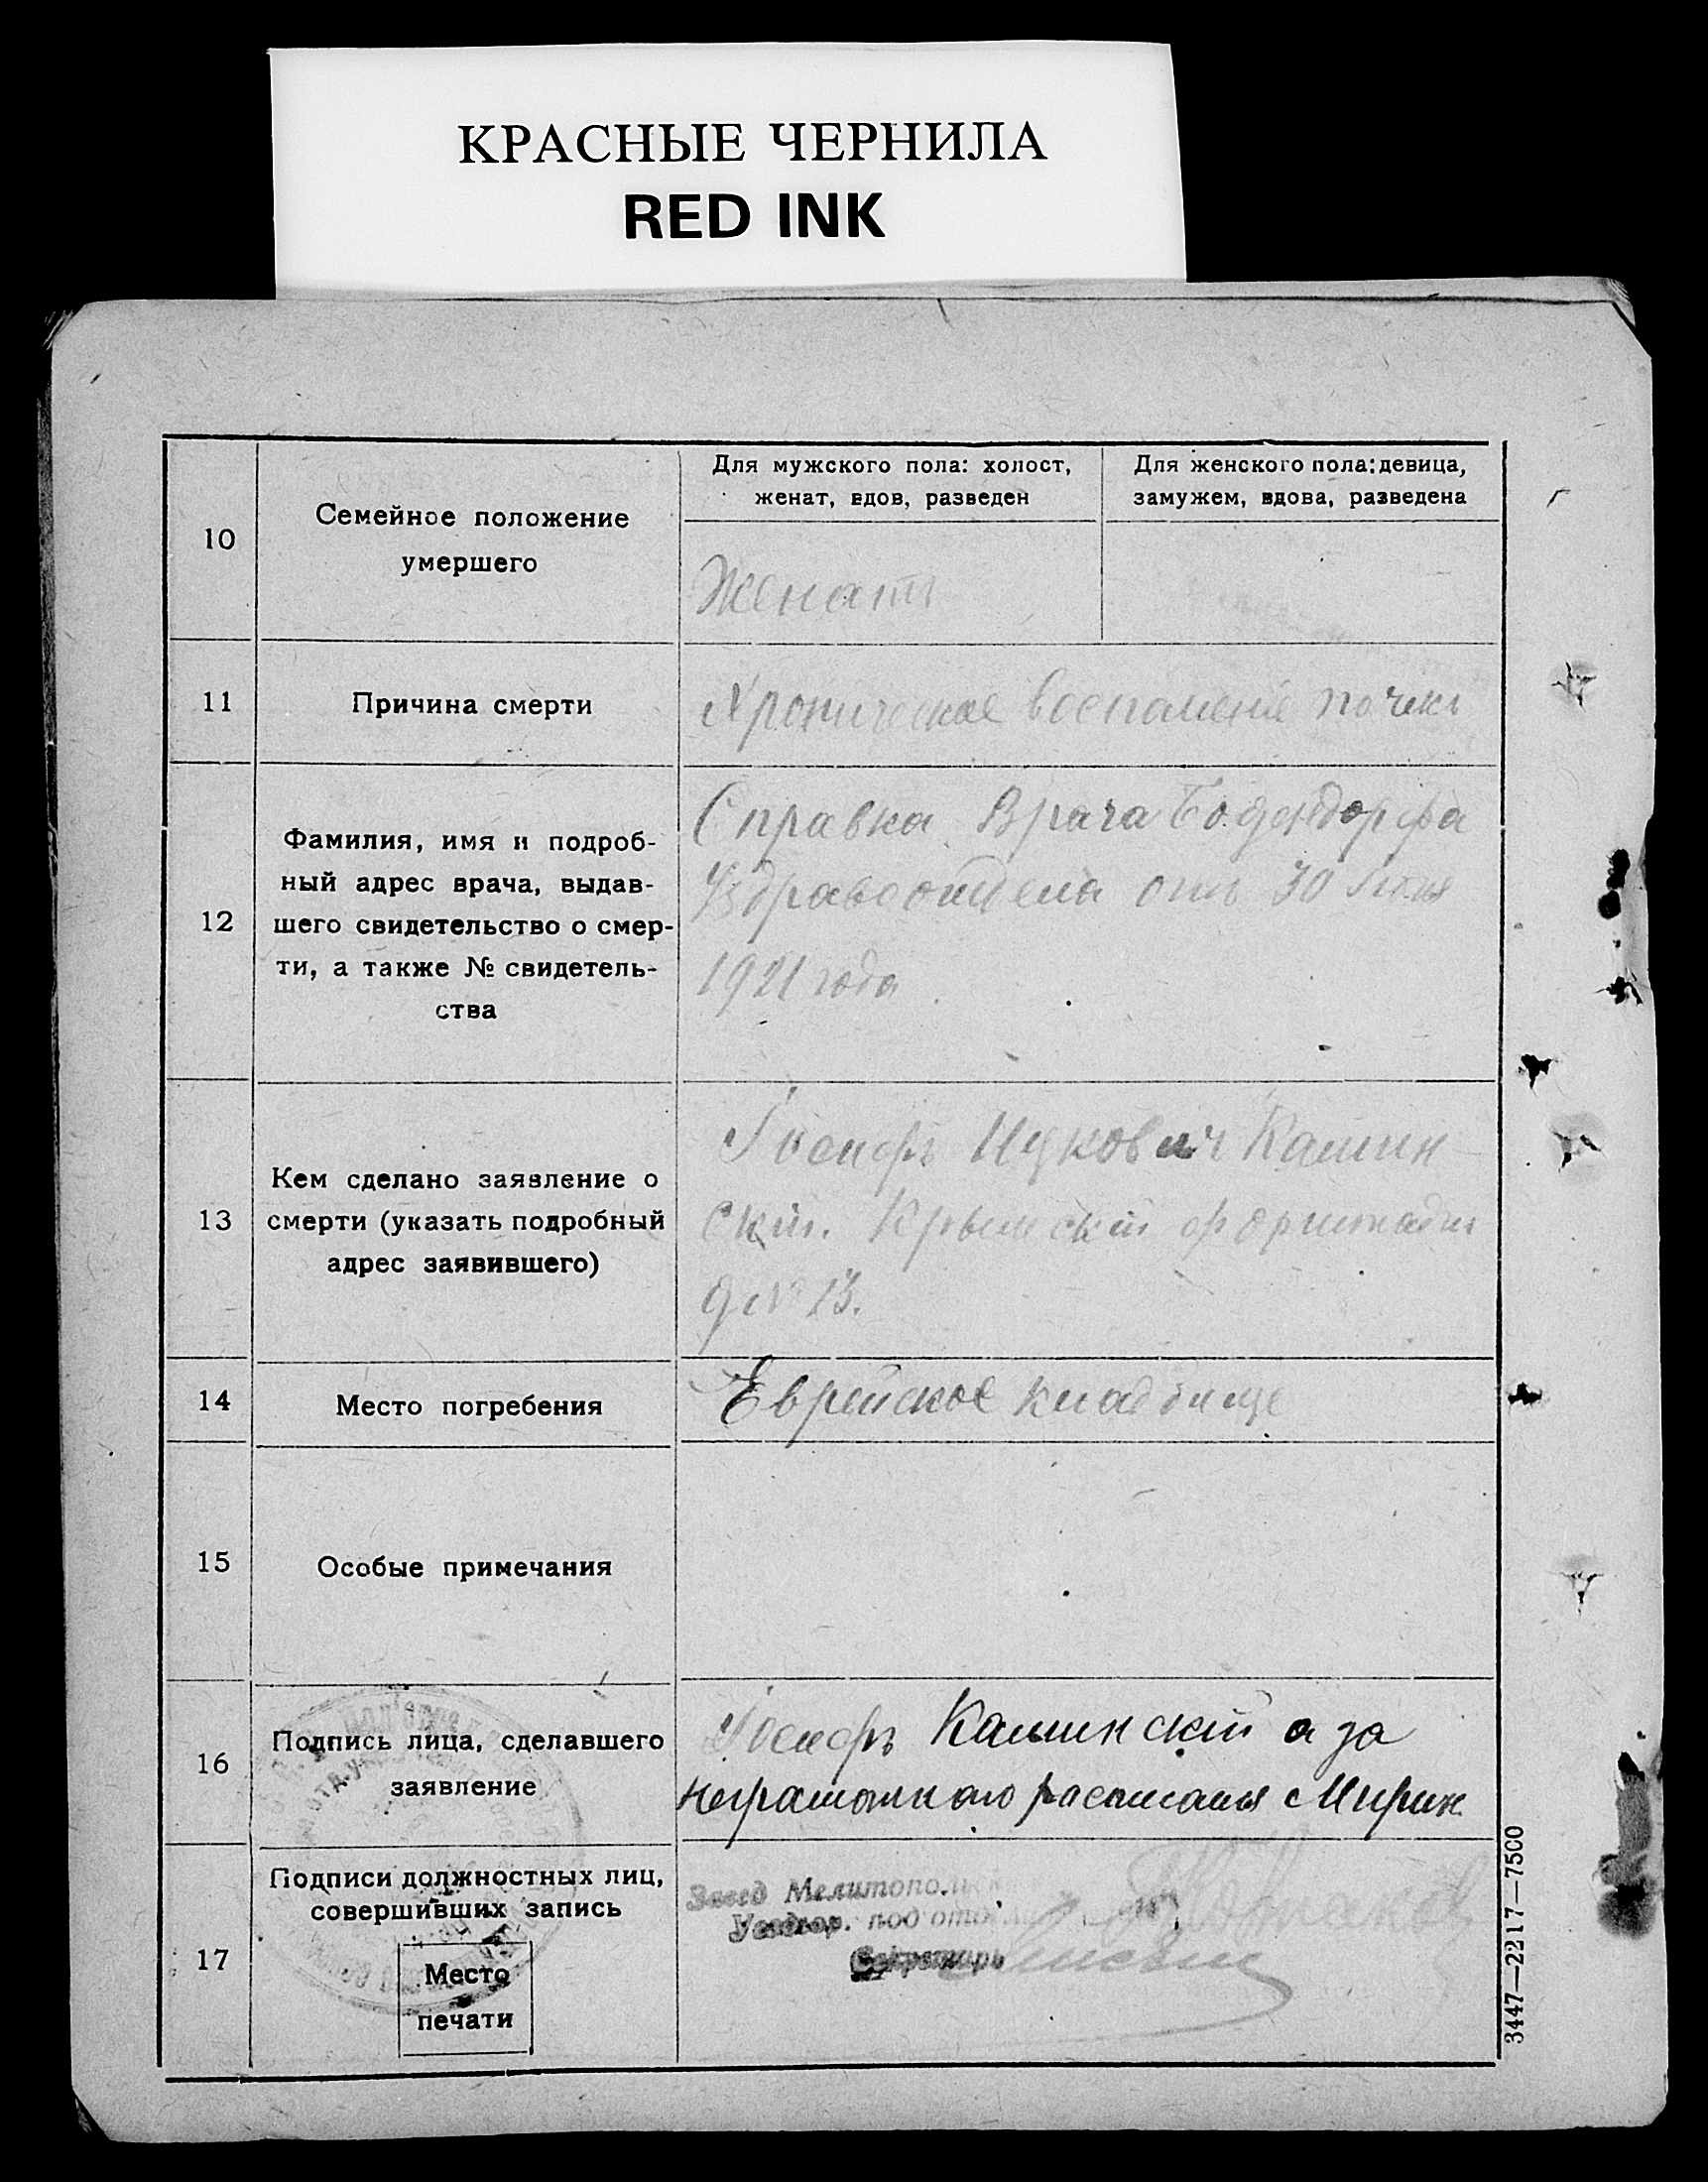 КРАСНЫЕ ЧЕРНИЛА
RED INK
10
Семейное положение
умершего
Для мужского пола: холост,
женат, вдов, разведен
Для женского пола: девица,
замужем, вдова, разведена
Женатъ
11
Причина смерти
Хроническое воспаленіе почекъ
12
Фамилия, имя и подроб-
ный адрес врача, выдав-
шего свидетельство о смер-
ти, а также № свидетель-
ства
Справка Врача Бодендорфа
Уздравотдела отъ 30
1921 года
13
Кем сделано заявление о
смерти (указать подробный
адрес заявившего)
Іосифъ Ицкович Камин
скій. Крымскій форштадтъ
д №13.
14
Место погребения
Еврейское кладбище
15
Особые примечания
16
Подпись лица, сделавшего
заявление
Іосифъ Каминскій а за
неграмотного расписался
17
Подписи должностных лиц,
совершивших запись
Место
печати
Завед Мелитопольск
Уездгор. подотд
Секретарь
3447—2217—7500